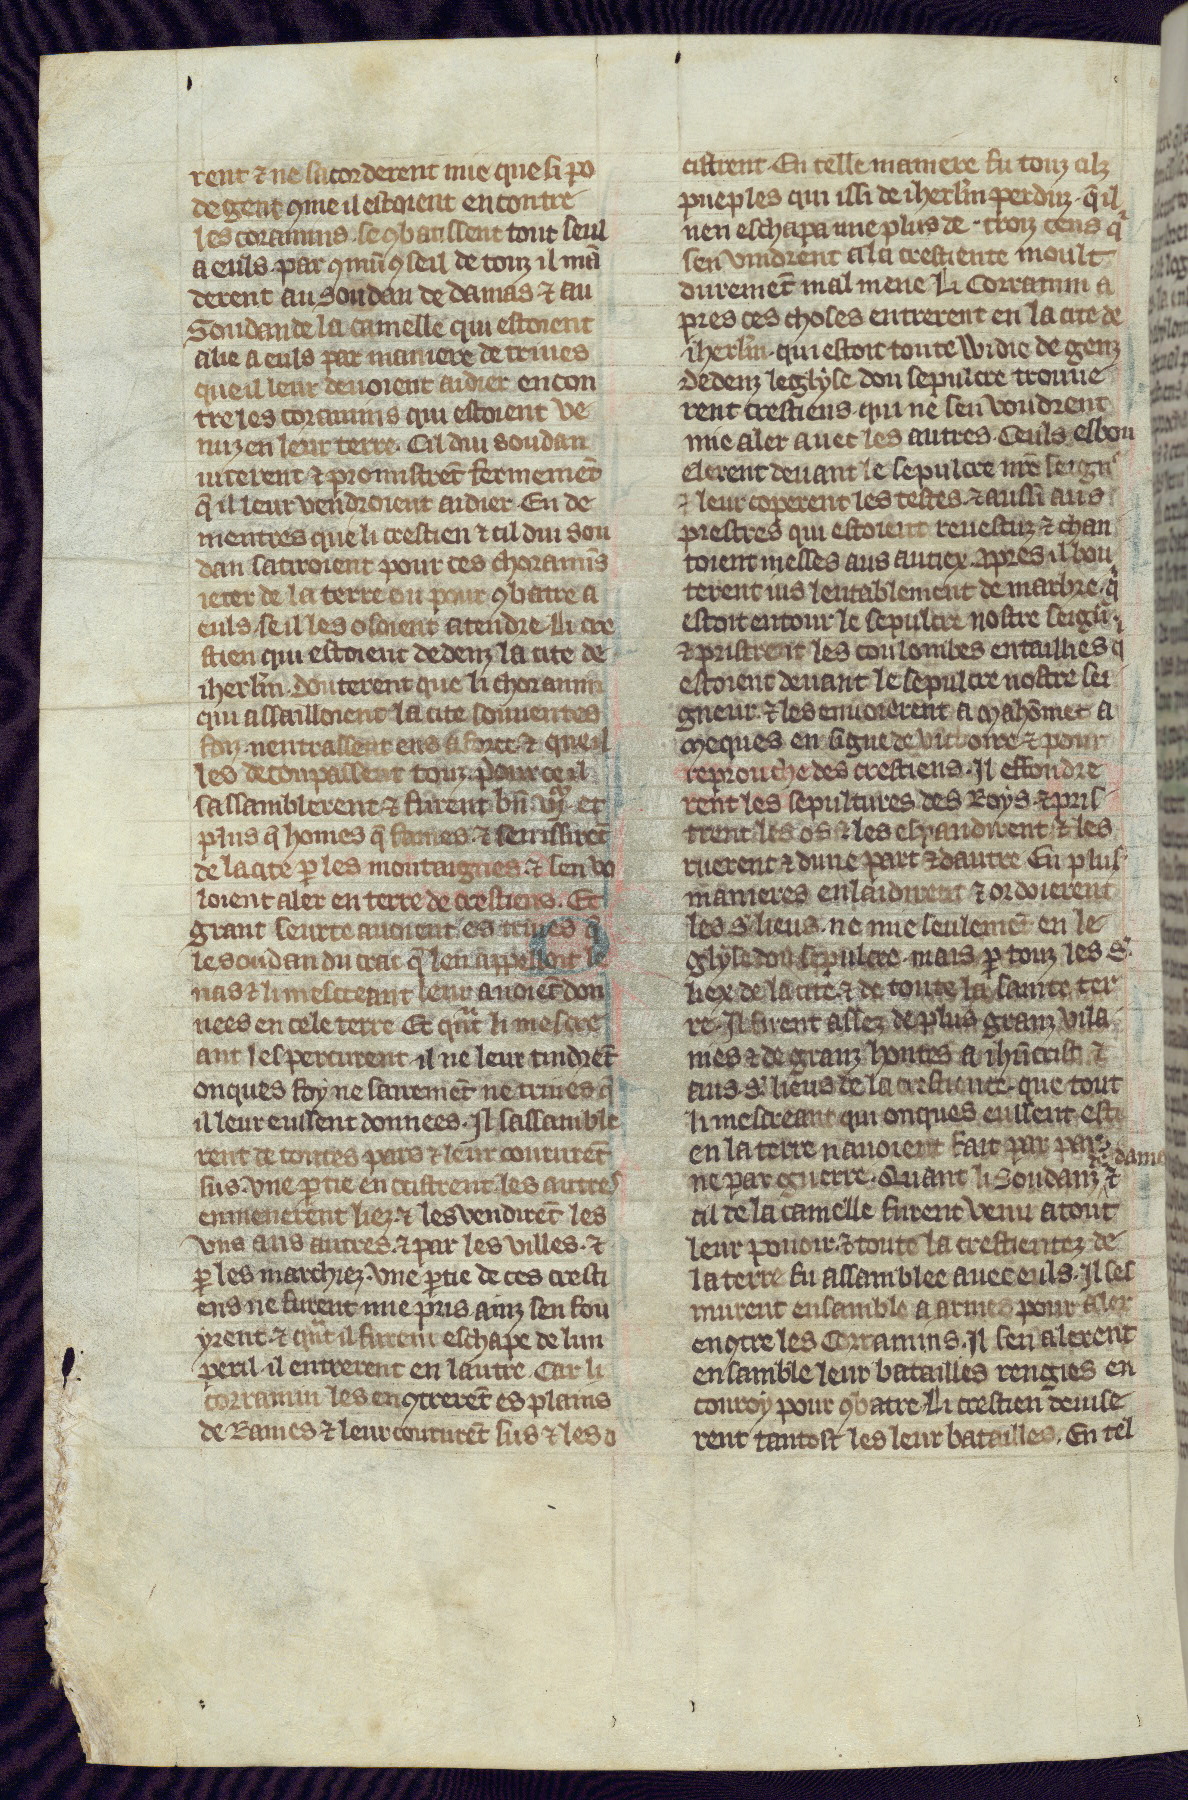 rent ⁊ ne sacorderent mie que si po
de gent ꝯme il estoient en contre
les coramins se ꝯbatissent tout seul
a euls. par ꝯmũ ꝯseil de touz il mã
derent au Soudan de damas ⁊ au
Soudan de la camelle qui estoient
alie a euls par maniere de triues
que il leur deuoient aidier encon
tre les coramins qui estoient ve
nuz en leur terre. Cil dui soudan
iurerent ⁊ promistrẽt fermemẽt
q̃ il leur vendroient aidier. En de
mentres que li crestien ⁊ cil dui sou
dan satiroient pour ces choramĩs
ieter de la terre ou pour ꝯbatre a
euls. se il les osoient atendre. Li cre
stien qui estoient dedenz la cite de
iherl̃m. douterent que li choramin
qui assailloient la cite souuentes
foiz. nentrassent ens a force. ⁊ que il
les decoupassent touz. Pour ce il
sassamblerent ⁊ furent bñ. vıͫ. et
plus q̃ homes q̃ fames. ⁊ sen issirẽt
de la cite ꝑ les montaignes. ⁊ sen vo
loient aler en terre de crestiens. Et
grant seurte auoient es triues q̃
le soudan du crac q̃ len appelloit le
nas ⁊ li mescreant leur auoiẽt don
nees en cele terre. Et qũt li mescre
ant les percurent. il ne leur tindrẽt
onques foy ne sairemẽt ne triues q̃
il leur eussent donnees. Il sassamble
rent de toutes pars ⁊ leur coururẽt
sus. vne ꝑtie en ocistrent. les autres
enmenerent liez. ⁊ les vendirẽt les
vns aus autres. ⁊ par les villes. ⁊
ꝑ les marchiez. Vne ꝑtie de ces cresti
ens ne furent mie pris. ainz sen fou
yrent. ⁊ qũt il furent eschape de lun
peril. il entrerent en lautre. Car li
corramin les enꝯtrerẽt es plains
de Rames ⁊ leur coururẽt sus ⁊ les o
cistrent. En telle maniere fu touz cilz
pueples qui issi de iherl̃m perduz. q̃ il
nen eschapa mie plus de. troiz cens q̃
sen vindrent a la crestiente moult
duremẽt mal mene. Li Corramin a
pres ces choses entrerent en la cite de
iherl̃m. qui estoit toute widie de genz
Dedenz leglyse dou sepulcre trouue
rent crestiens. qui ne sen voudrent
mie aler auec les autres. Ceuls esbou
elerent deuant le sepulcre nr̃e seigñ
⁊ leur coperent les testes. ⁊ aussi aus
prestres qui estoient reuestuz ⁊ chan
toient messes aus autiex. Apres il bou
terent ius lentablement de marbre. q̃
estoit entour le sepulcre nostre seigñ.
⁊ pristrent les coulombes entaillies q̃
estoient deuant le sepulcre nostre sei
gneur. ⁊ les enuoierent a Mahõmet a
Meques en signe de victoire ⁊ pour
reprouche des crestiens. Il effondre
rent les sepultures des Roys. ⁊ pris
trent les os ⁊ les espandirent. ⁊ les
ruerent ⁊ dune part ⁊ dautre. En plus
manieres enlaidirent ⁊ ordoierent
les s. lieus. ne mie seulemẽt en le
glyse dou sepulcre. mais ꝑ touz les s.
liex de la cite. ⁊ de toute la sainte ter
re. Il firent assez de plus granz vila
nies ⁊ de granz hontes a ihũcrist ⁊
aus s. lieus de la crestiente. que tout
li mescreant qui onques eussent este
en la terre nauoient fait par paiz
ne par guerre. Quant li Soudanz ⁊
cil de la camelle furent venu a tout
leur pouoir. ⁊ toute la crestientez de
la terre fu assamblee auec euls. Il ses
murent ensamble a armes pour aler
enꝯtre les Corramins. Il sen alerent
ensamble leur batailles rengies en
conroy pour ꝯbatre. Li crestien deuise
rent tantost les leur batailles. En tel